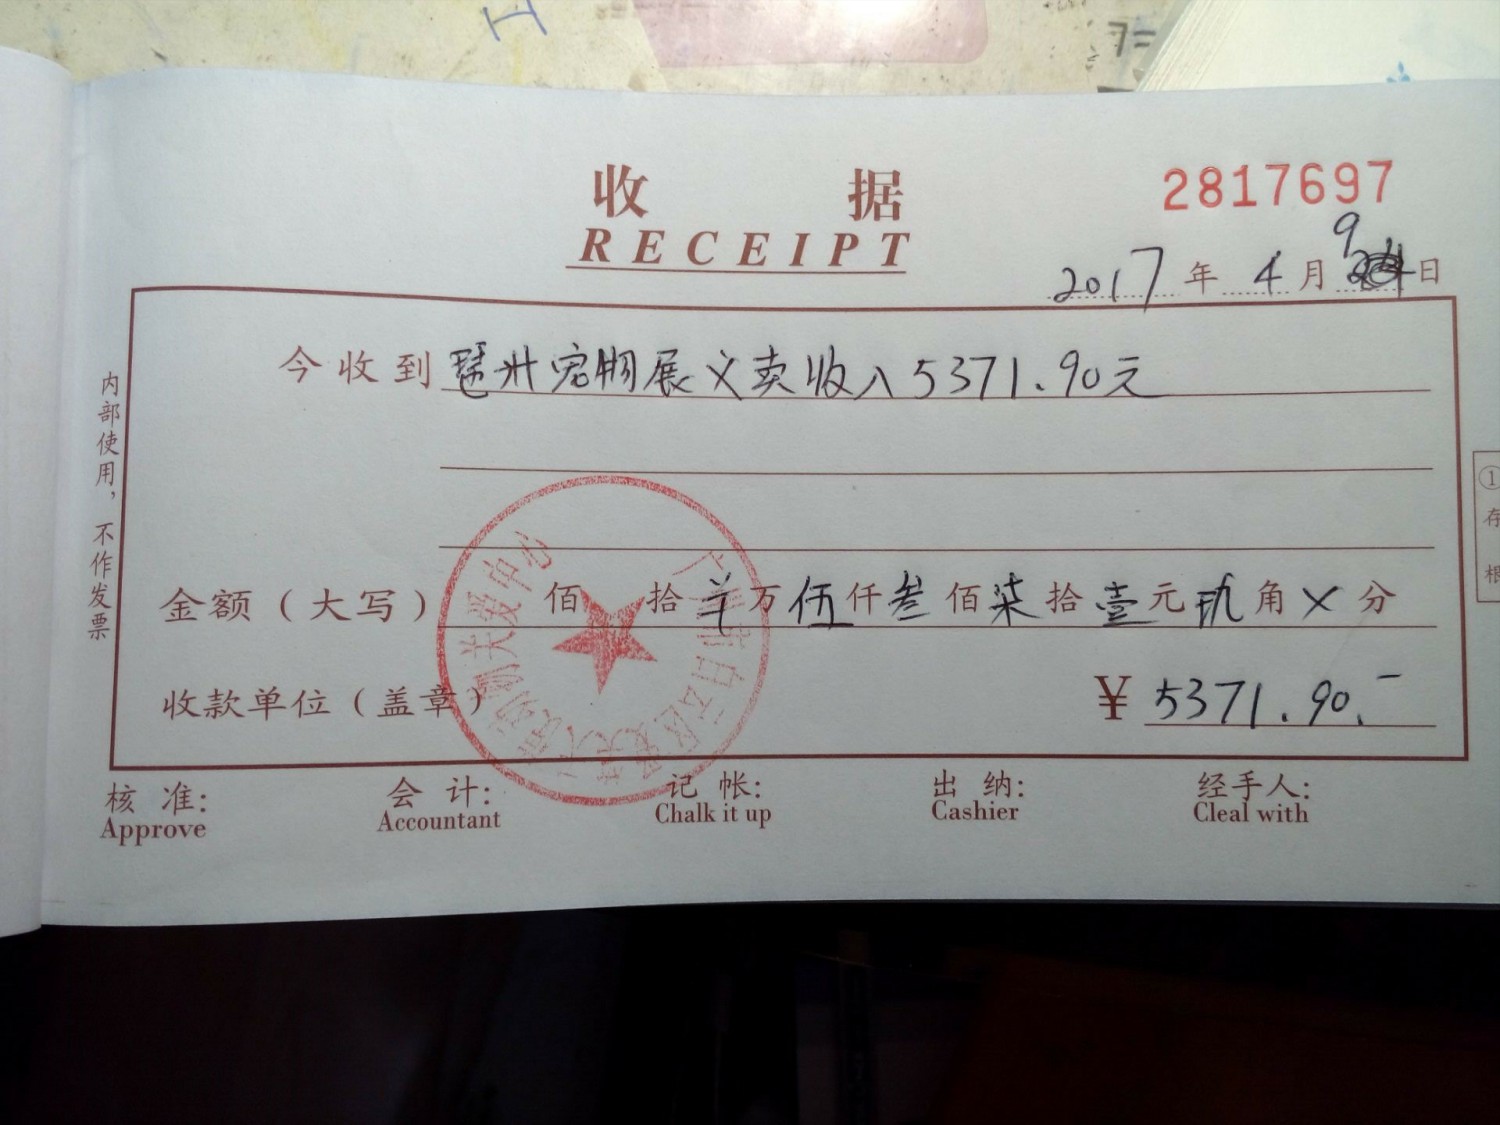 收 据
RECEIPT
2817697
2017年4月9日
今收到琶州宠物展义卖收入5371.90元
金额（大写） 佰 拾 万伍仟叁佰柒拾壹元玖角X分
收款单位（盖章）
¥5371.90.-
核 准:
Approve
会 计:
Accountant
记 帐:
Chalk it up
出 纳:
Cashier
经手人:
Cleal with
内部使用，不作发票
①存根
动物关爱中心